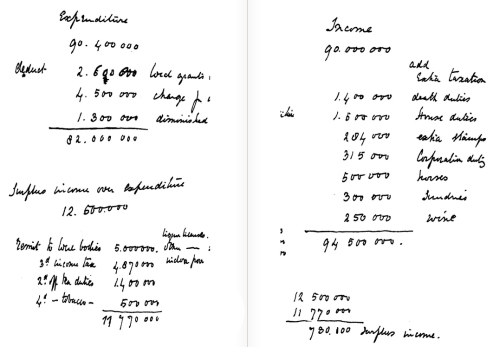 Expenditure
90.400000
deduct 2.600000 local grants
4.500000 change
1.300000 diminished
82.000000
Surplus income over expenditure
12.500000
liquor licences
Remit to local bodies 5.000000.
3d income tax 4.870000
2d off tea duties 1.400000
4d - tobacco - 500000
11 770000
Income
90.000000
add
Extra taxation
1.400000 death duties
1.600000 House duties
284000 extra stamps
315000 Corporation duty
500000 horses
300000 Sundries
250000 wine
94 500000.
12 500000
11 770000
730.000 surplus income.